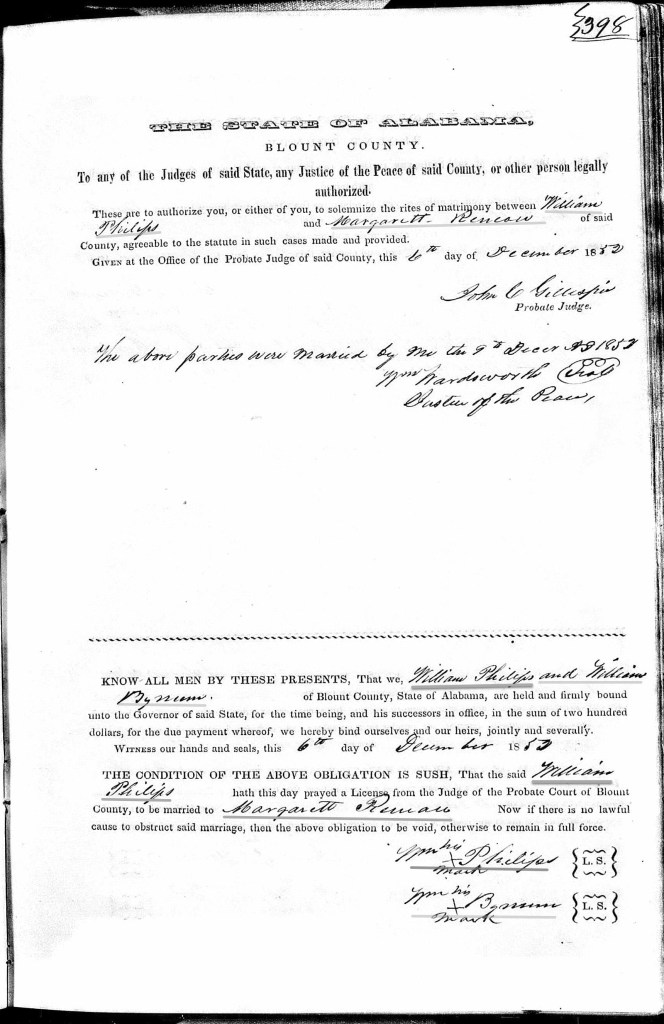 398
THE STATE OF ALABAMA,
BLOUNT COUNTY.
To any of the Judges of said State, any Justice of the Peace of said County, or other person legally
authorized.
These are to authorize you, or either of you, to solemnize the rites of matrimony between William
Philips and Margarett of said
County, agreeable to the statute in such cases made and provided.
GIVEN at the Office of the Probate Judge of said County, this 6th day of December 1852
John C Gillespie
Probate Judge.
The above parties were married by me the 9th Decer AD 1852
Wm Wardsworth
Justice of the Peace,
KNOW ALL MEN BY THESE PRESENTS, That we, William Philips and William
Bynum. of Blount County, State of Alabama, are held and firmly bound
unto the Governor of said State, for the time being, and his successors in office, in the sum of two hundred
dollars, for the due payment whereof, we hereby bind ourselves and our heirs, jointly and severally.
WITNESS our hands and seals, this 6th day of December 1852
THE CONDITION OF THE ABOVE OBLIGATION IS SUSH, That the said William
Philips hath this day prayed a License from the Judge of the Probate Court of Blount
County, to be married to Margarett Now if there is no lawful
cause to obstruct said marriage, then the above obligation to be void, otherwise to remain in full force.
Wm his X Philips L. S.
mark
Wm his X Bynum L. S.
mark